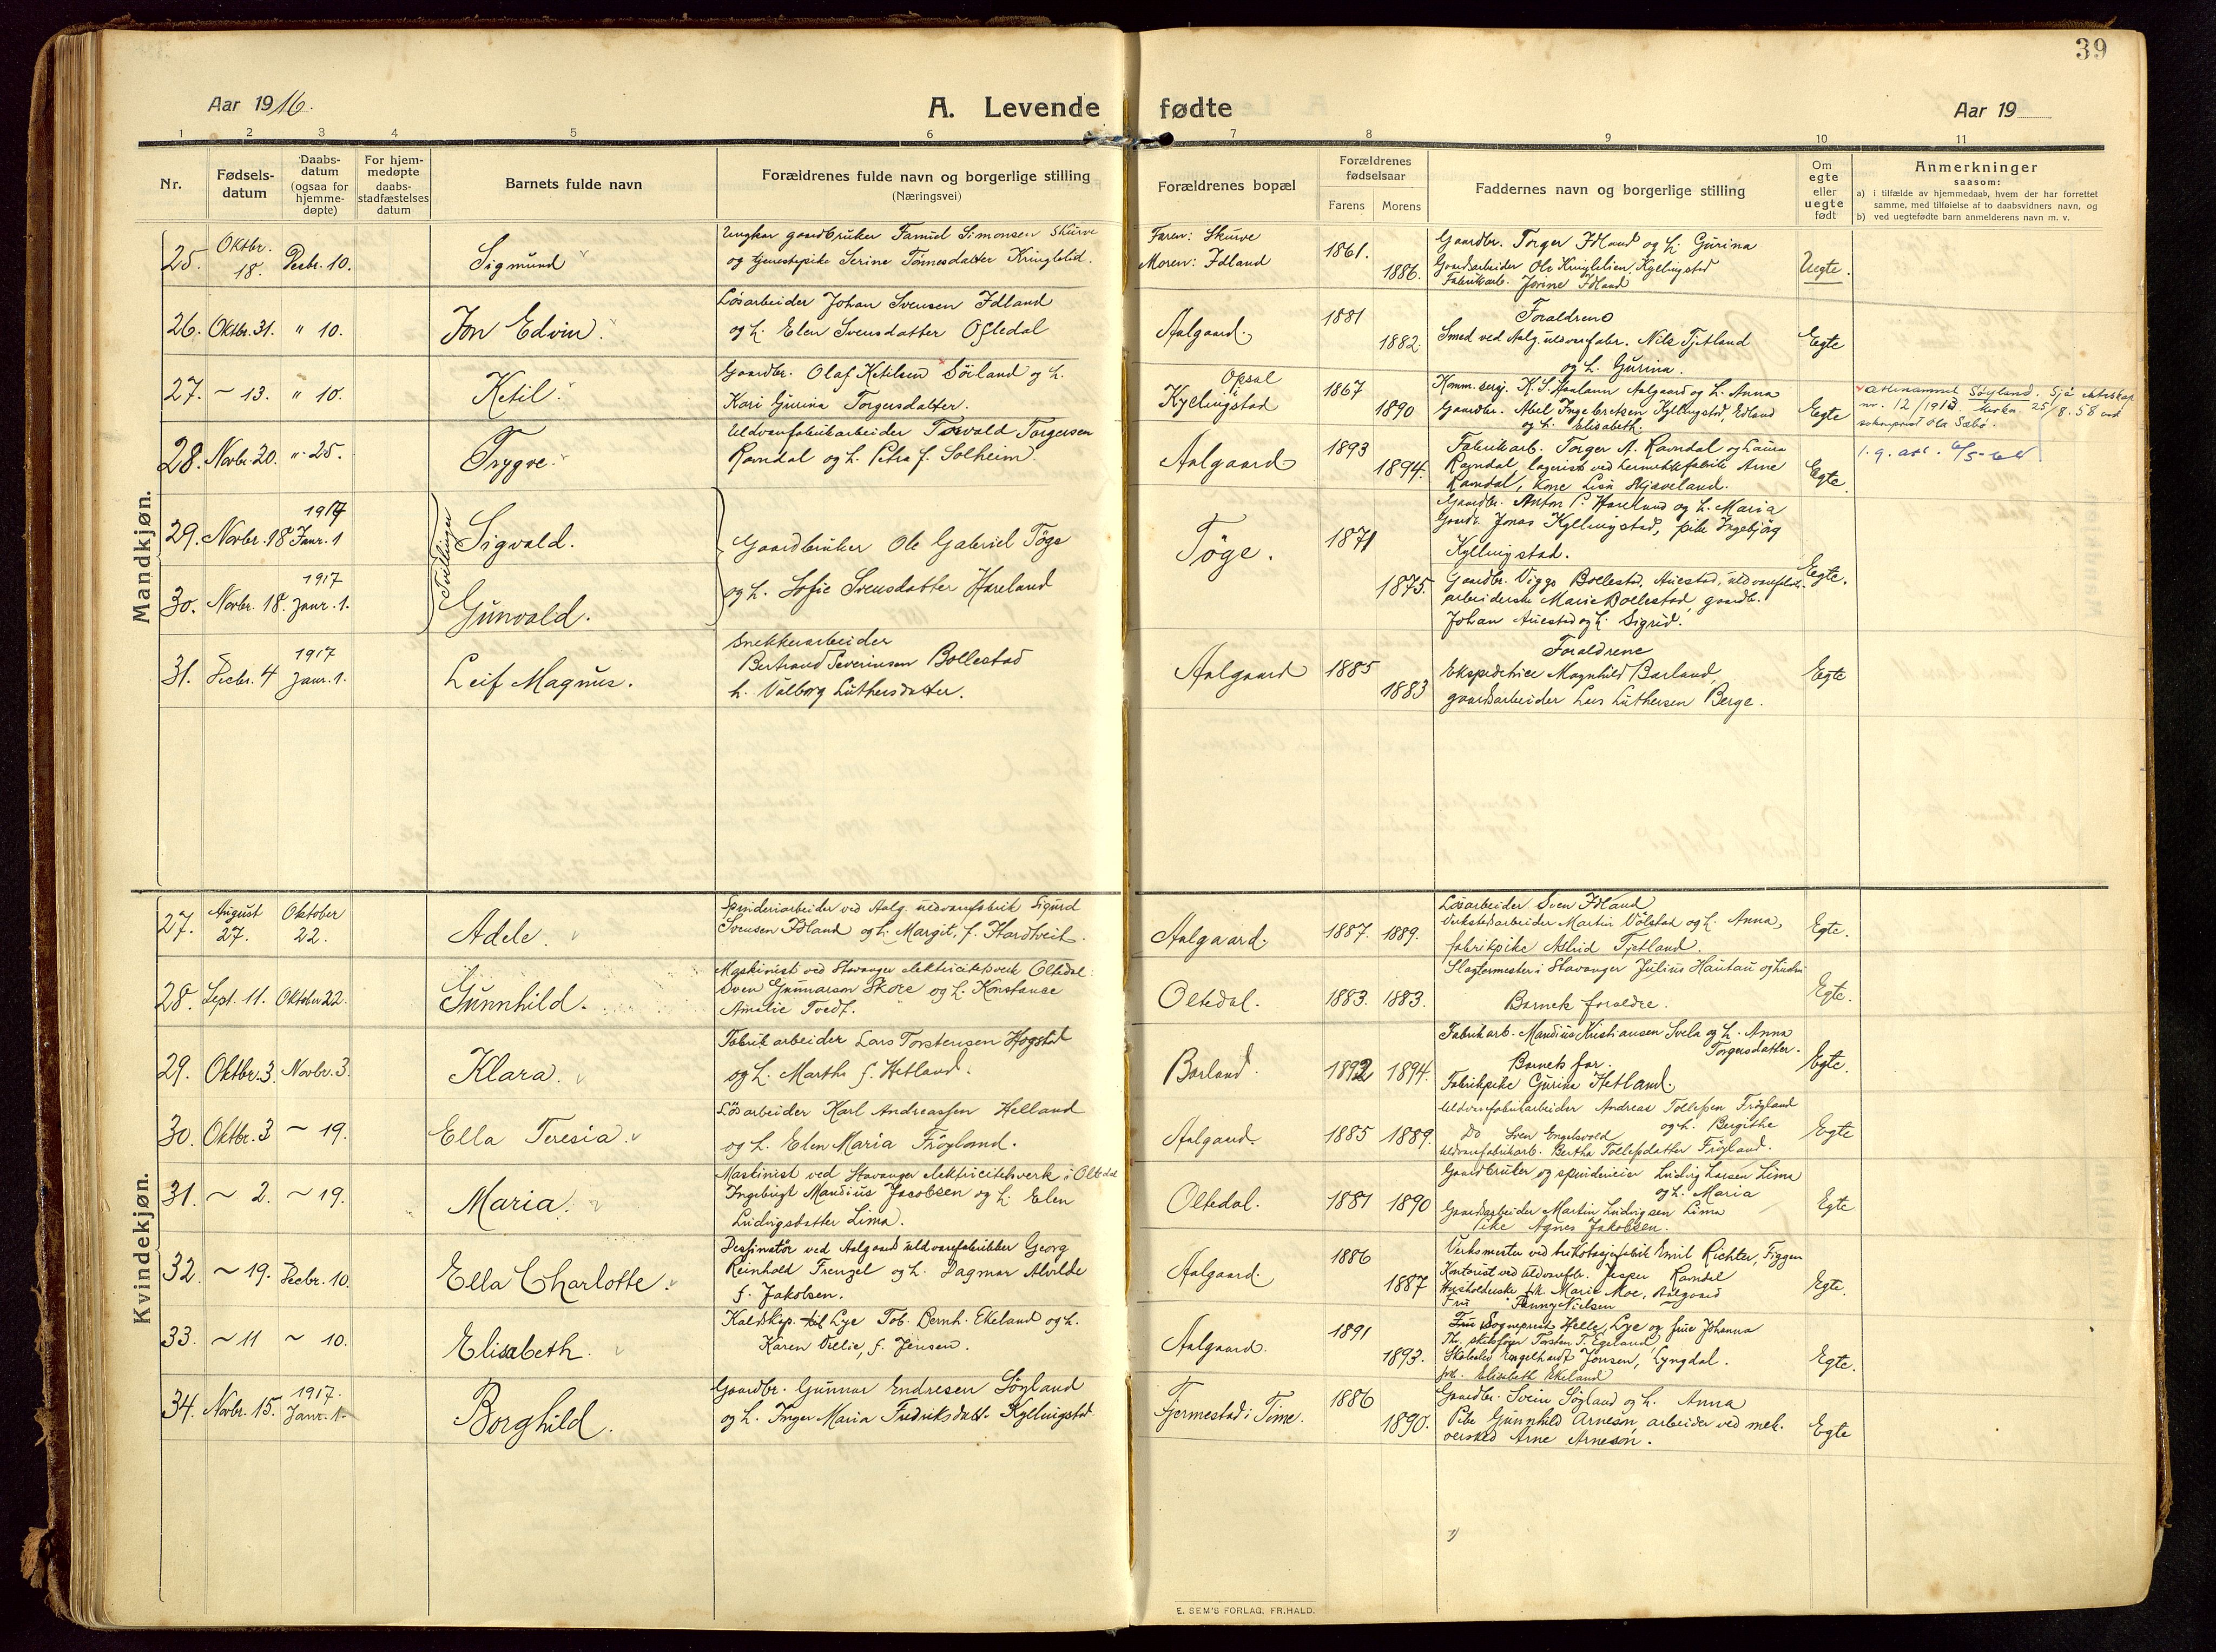 39
Aar 1916.
A. Levende fødte
Aar 19
1 2 3 4 5 6 7 8 9 10 11
Nr.
Fødsels-
datum
Daabs-
datum
(ogsaa for
hjemme-
døpte)
For hjem-
medøpte
daabs-
stadfæstelses
datum
Barnets fulde navn
Forældrenes fulde navn og borgerlige stilling
(Næringsvei)
Forældrenes bopæl
Forældrenes
fødselsaar
Farens Morens
Faddernes navn og borgerlige stilling
Om
egte
eller
uegte
født
Anmerkninger
saasom:
a) i tilfælde av hjemmedaab, hvem der har forrettet
samme, med tilføielse af to daabsvidners navn, og
b) ved uegtefødte barn anmelderens navn m. v.
Mandkjøn.
25.
Oktbr.
18.
Desbr. 10.
Sigmund
Ungkar gaardbruker Samuel Simonsen Skurve
og tjenestepike Serine Tønnesdatter Kringlelid.
Faren: Skurve
Moren: Idland
1861.
1886.
Gaardbr. Torger Idland og h. Gurina
Gaardsarbeider Ole Kringlelien, Kyllingstad
Fabrikarb. Jorine Idland
Uegte.
26. Oktbr. 31. " 10.
Jon Edvin.
Løsarbeider Johan Svensen Idland
og h. Elen Svensdatter Oftedal
Aalgaard.
1881
1882.
Forældrene
Smed ved Aalg. uldvarefabr. Nils Tjetland
og h. Gurina.
Egte
27. ~ 13. " 10.
Ketil.
Gaardbr. Olaf Ketilsen Söiland og h.
Kari Gurina Torgersdatter.
Opsal
Kyllingstad
1867
1890
Komm. serg. K. S. Haaland Aalgaard og h. Anna
Gaardbr. Abel Ingebretsen Kyllingstad, Edland
og h. Elisabeth.
Egte
Söyland. Sjå ekteskap
nr. 12/1913 Merkn. 25/8.58 ved
sokneprest Ola Sæbø.
28. Novbr. 20. " 25.
Trygve.
Uldvarefabrikarbeider Torvald Torgersen
Ravndal og h. Petra f. Solheim
Aalgaard
1893
1894.
Fabrikarb. Torger A. Ravndal og Laura
Ravndal, lagerist ved hermetikfabrik Arne
Ravndal, kone Lisa Skjæveland.
Egte.
29. Novbr. 18
1917
Janr. 1
Tvillinger
Sigvald.
Gaardbruker Ole Gabriel Töge
og h. Sofie Svensdatter Hareland
Töge.
1871
1875.
Gaardbr. Anton P. Hareland og h. Maria
Gaardr. Jonas Kyllingstad, pike Ingebjørg
Kyllingstad.
Egte.
30. Novbr. 18.
1917
Janr. 1.
Gunvald.
Gaardbr. Viggo Bollestad, Auestad, uldvarefabr.
arbeiderske Marie Bollestad, gaardb.
Johan Auestad og h. Sigrid.
31. Desbr. 4
1917
Janr. 1.
Leif Magnus.
Snekkerarbeider
Bertrand Severinsen Bollestad
h. Valborg Luthersdatter.
Aalgaard
1885
1883
Forældrene
Ekspeditrice Magnhild Barland,
gaardsarbeider Lars Luthersen Berge.
Egte
Kvindekjøn.
27.
August
27.
Oktober
22.
Adele.
Spinderiarbeider ved Aalg. uldvarefabrik Sigurd
Svensen Idland og h. Margit, f. Hardtveit.
Aalgaard.
1887. 1889.
Løsarbeider Sven Idland
Verkstedarbeider Martin Völstad og h. Anna,
fabrikpike Astrid Tjetland.
Egte.
28. Sept. 11. Oktober 22.
Gunnhild.
Maskinist ved Stavanger elektricitetsverk Oltedal:
Sven Gunnarson Skore og h. Konstance
Amalie Tvedt.
Oltedal.
1883. 1883.
Slagtermester i Stavanger Julius Hautau og hustru
Barnets forældre.
Egte.
29. Oktbr. 3. Novbr. 3.
Klara.
Fabrikarbeider Lars Torstensen Hogstad
og h. Martha f. Hetland.
Borland.
1892 1894.
Fabrikarb. Mandius Kristiansen Svela og h. Anna
Torgersdatter.
Barnets far.
Fabrikpike Gurine Hetland.
Egte.
30. Oktbr. 3 ~ 19.
Ella Teresia.
Løsarbeider Karl Andreassen Helland
og h. Elen Maria Fröyland.
Aalgaard.
1885 1889.
Uldvarefabrikarbeider Andreas Tollefsen Fröyland
og h. Bergithe
Do Sven Engelsvold
Uldvarefabrikarb. Bertha Tollefsdatter Fröyland.
Egte
31. ~ 2. ~ 19.
Maria.
Maskinist ved Stavanger elektricitetsverk i Oltedal
Ingebrigt Mandius Jacobsen og h. Elen
Ludvigsdatter Lima.
Oltedal.
1881 1890
Gaardbruker og spinderieier Ludvig Larsen Lima
og h. Maria
Gaardsarbeider Martin Ludvigsen Lima
Pike Agnes Jakobsen.
Egte
32. ~ 19. Desbr. 10.
Ella Charlotte.
Dessinatör ved Aalgaard uldvarefabrikker Georg
Reinhold Frenzel og h. Dagmar Alvilde
f. Jakobsen.
Aalgaard.
1886
1887
Verksmester ved trikotagefabrik Emil Richter, Figgen
Kontorist ved uldvarefbr. Jesper Ravndal
Husholderske frk. Marie Moe, Aalgaard
Fru Fanny Nielsen
Egte.
33. ~ 11 ~ 10.
Elisabeth.
Kaldskap. til Lye Tob. Bernh. Ekeland og h.
Karen Oelie, f. Jensen.
Aalgaard.
1891
1893.
Sogneprest Helle, Lye og frue Johanna
Th. skibsfører Torsten T. Egeland
Engelhardt Jonsen, Lyngdal.
frk. Elisabeth Ekeland
Egte.
34. Novbr. 15.
1917.
Janr. 1.
Borghild.
Gaardbr. Gunnar Endresen Söyland
og h. Inger Maria Fredriksdatt. Kyllingstad.
Fjermestad i Time.
1886
1890.
Gaardbr. Svein Söyland og h. Anna
Pike Gunnhild Arneson arbeider ved mek.
versked Arne Arneson.
Egte
E. SEM'S FORLAG, FR.HALD.